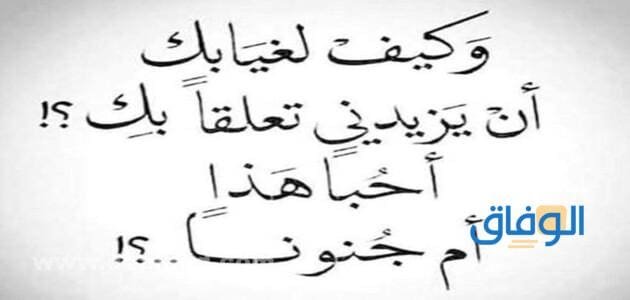 وَكيفْ لغيَابك
أنْ يَزيدني تعلقاً بكِ ؟!
أحُباً هَذا
أم جُنونــاً ...؟!
الوفاق